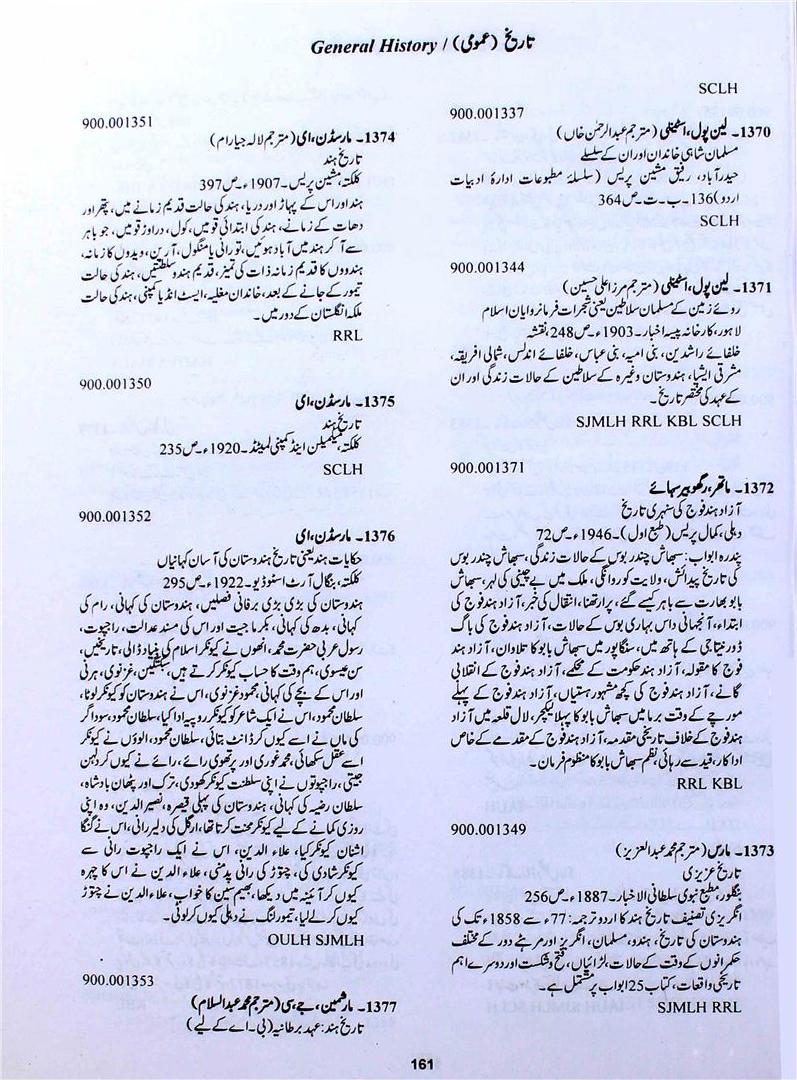 General History / تاریخ (عمومی)
SCLH
900.001337
1370۔ لین پول، اسٹینلی (مترجم عبدالرحمٰن خاں)
مسلمان شاہی خاندان اور ان کے سلسلے
حیدرآباد، رفیق مشین پریس (سلسلۂ مطبوعات ادارۂ ادبیات
اردو)136۔ ب۔ت۔ ص364
SCLH
900.001344
1371۔ لین پول، اسٹینلی (مترجم مرزا علی حسین)
روئے زمین کے مسلمان سلاطین یعنی شجرات فرمانروایان اسلام
لاہور، کارخانہ پیسہ اخبار۔ 1903ء۔ ص248، نقشہ
خلفائے راشدین، بنی امیہ، بنی عباس، خلفائے اندلس، شمالی افریقہ،
مشرقی ایشیا، ہندوستان وغیرہ کے سلاطین کے حالات زندگی اور ان
کے عہد کی مختصر تاریخ۔
SJMLH RRL KBL SCLH
900.001371
1372۔ ماتھر، رگھوبیر سہائے
آزاد ہند فوج کی سنہری تاریخ
دہلی، کمال پریس (طبع اول)۔ 1946ء۔ ص72
پندرہ ابواب: سبھاش چندر بوس کے حالات زندگی، سبھاش چندر بوس
کی تاریخ پیدائش، ولایت کو روانگی، ملک میں بے چینی کی لہر، سبھاش
بابو بھارت سے باہر کیسے گئے، پرارتھنا، انتقال کی خبر، آزاد ہند فوج کی
ابتداء، آنجہانی داس بہاری بوس کے حالات، آزاد ہند فوج کی باگ
ڈور نیتاجی کے ہاتھ میں، سنگاپور میں سبھاش بابو کا تلاوان، آزاد ہند
فوج کا مقولہ، آزاد ہند حکومت کے محکمے، آزاد ہند فوج کے انقلابی
گانے، آزاد ہند فوج کی کچھ مشہور ہستیاں، آزاد ہند فوج کے پہلے
مورچے کے وقت برما میں سبھاش بابو کا پہلا لیکچر، لال قلعہ میں آزاد
ہند فوج کے خلاف تاریخی مقدمہ، آزاد ہند فوج کے مقدمے کے خاص
اداکار، قید سے رہائی، نظم سبھاش بابو کا منظوم فرمان۔
RRL KBL
900.001349
1373۔ مارس (مترجم محمد عبدالعزیز)
تاریخ عزیزی
بنگلور، مطبع نبوی سلطانی الاخبار۔ 1887ء۔ ص256
انگریزی تصنیف تاریخ ہند کا اردو ترجمہ: 77ء سے 1858ء تک کی
ہندوستان کی تاریخ، ہندو، مسلمان، انگریز اور مرہٹے دور کے مختلف
حکمرانوں کے وقت کے حالات، لڑائیاں، فتح و شکست اور دوسرے اہم
تاریخی واقعات، کتاب 25 ابواب پر مشتمل ہے۔
SJMLH RRL
900.001351
1374۔ مارسڈن، ای (مترجم لالہ جیارام)
تاریخ ہند
کلکتہ، مشین پریس۔ 1907ء۔ ص397
ہند اور اس کے پہاڑ اور دریا، ہند کی حالت قدیم زمانے میں، پتھر اور
دھات کے زمانے، ہند کی ابتدائی قومیں، کول، دراوڑ قومیں، جو باہر
سے آ کر ہند میں آباد ہوئیں، تورانی یا منگول، آرین، ویدوں کا زمانہ،
ہندوؤں کا قدیم زمانہ ذات کی تمیز، قدیم ہندو سلطنتیں، ہند کی حالت
تیمور کے جانے کے بعد، خاندان مغلیہ، ایسٹ انڈیا کمپنی، ہند کی حالت
ملکہ انگلستان کے دور میں۔
RRL
900.001350
1375۔ مارسڈن، ای
تاریخ ہند
کلکتہ، میکمیلن اینڈ کمپنی لمیٹڈ۔ 1920ء۔ ص235
SCLH
900.001352
1376۔ مارسڈن، ای
حکایات ہند یعنی تاریخ ہندوستان کی آسان کہانیاں
کلکتہ، بنگال آرٹ اسٹوڈیو۔ 1922ء۔ ص295
ہندوستان کی بڑی بڑی برفانی فصلیں، ہندوستان کی کہانی، رام کی
کہانی، بدھ کی کہانی، بکرماجیت اور اس کی مسند عدالت، راجپوت،
رسول عربی حضرت محمد، انھوں نے کیونکر اسلام کی بنیاد ڈالی، تاریخیں،
سن عیسوی، ہم وقت کا حساب کیونکر کرتے ہیں، سبکتگین، غزنوی، ہرنی
اور اس کے بچے کی کہانی، محمود غزنوی، اس نے ہندوستان کو کیونکر لوٹا،
سلطان محمود، اس نے ایک شاعر کو کیونکر روپیہ ادا کیا، سلطان محمود، سوداگر
کی ماں نے اسے کیوں کر ڈانٹ بتائی، سلطان محمود، الوؤں نے کیونکر
اسے عقل سکھائی، محمد غوری اور پرتھوی رائے، رائے نے کیوں کر دلہن
جیتی، راجپوتوں نے اپنی سلطنت کیونکر کھودی، ترک اور پٹھان بادشاہ،
سلطان رضیہ کی کہانی، ہندوستان کی پہلی قیصرہ، نصیر الدین، وہ اپنی
روزی کمانے کے لیے کیونکر محنت کرتا تھا، ارگل کی دلیر رانی، اس نے گنگا
اشنان کیونکر کیا، علاء الدین، اس نے ایک راجپوت رانی سے
کیونکر شادی کی، چتوڑ کی رانی پدمنی، علاء الدین نے اس کا چہرہ
کیوں کر آئینہ میں دیکھا، بھیم سین کا خواب، علاء الدین نے چتوڑ
کیوں کر لے لیا، تیمور لنگ نے دہلی کیوں کر لوٹی۔
OULH SJMLH
900.001353
1377۔ مارشمین، جے، سی (مترجم محمد عبدالسلام)
تاریخ ہند: عہد برطانیہ (بی۔ اے کے لیے)
161